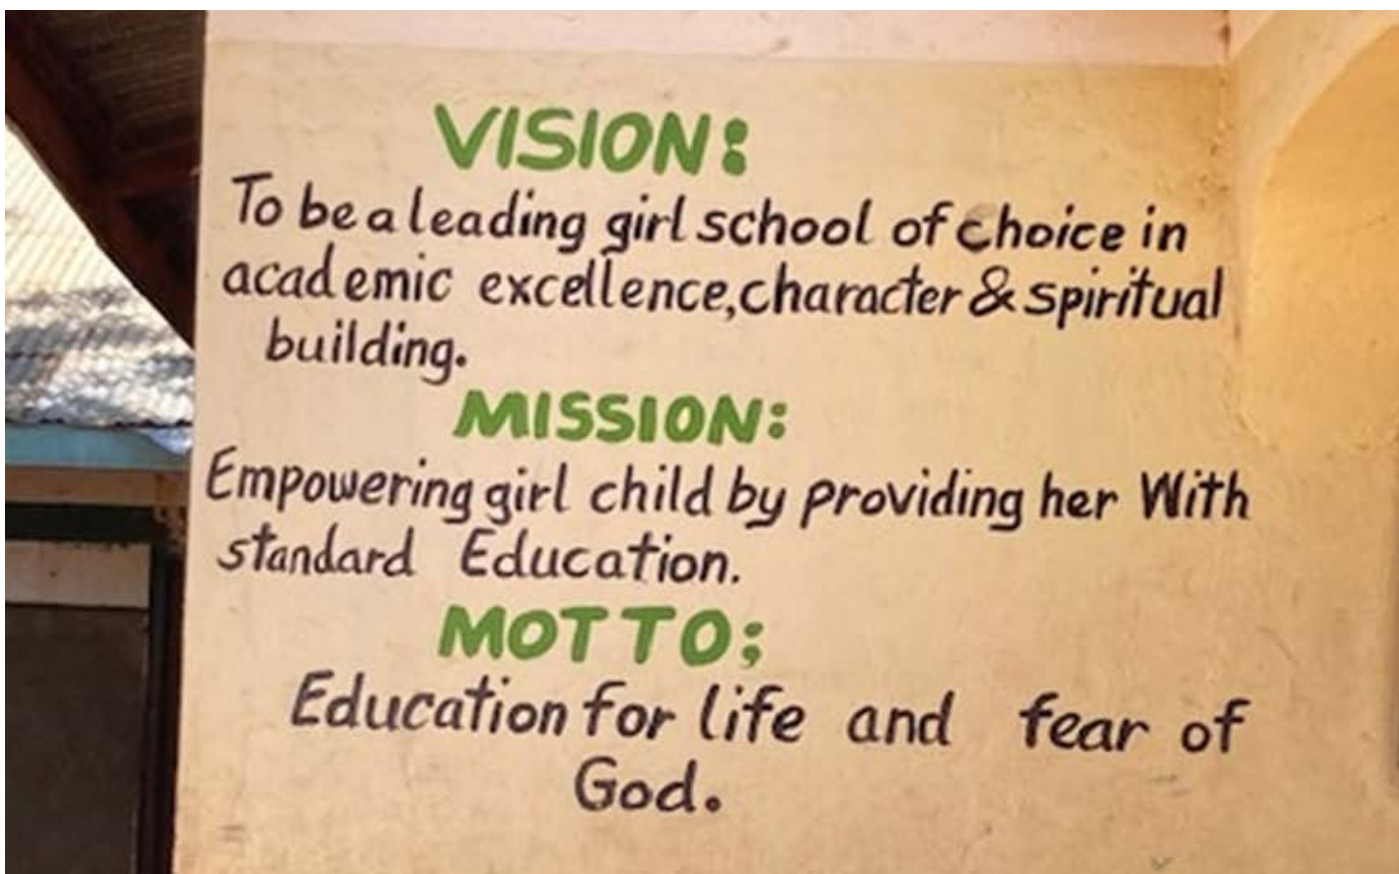 VISION:
To be a leading girl school of choice in
academic excellence, character & spiritual
building.
MISSION:
Empowering girl child by providing her With
standard Education.
MOTTO;
Education for life and fear of
God.